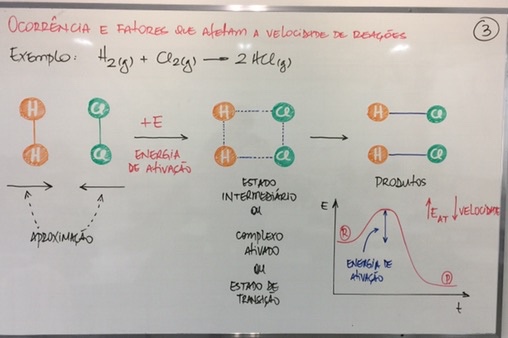 OCORRÊNCIA E FATORES QUE AFETAM A VELOCIDADE DE REAÇÕES
3
EXEMPLO: H₂(g) + Cl₂(g) → 2 HCl(g)
H Cl
H Cl
+E
ENERGIA
DE ATIVAÇÃO
H Cl
H Cl
H Cl
H Cl
APROXIMAÇÃO
ESTADO
INTERMEDIÁRIO
OU
COMPLEXO
ATIVADO
OU
ESTADO DE
TRANSIÇÃO
PRODUTOS
E
↑ E_AT ↓ VELOCIDADE
R
ENERGIA DE
ATIVAÇÃO
P
t